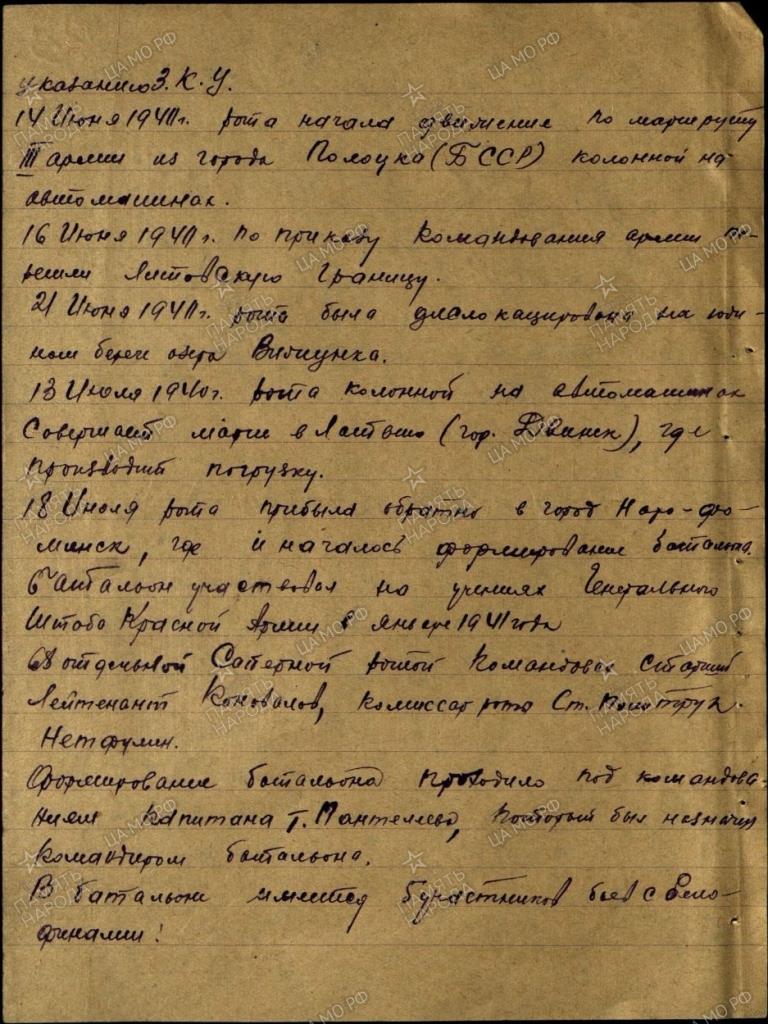 указанию З.К.У.
14 Июня 1940г. рота начала движение по маршруту
III армии из города Полоцка (БССР) колонной на
автомашинах.
16 Июня 1940г. по приказу командования армии пе-
решли Литовскую границу.
21 Июня 1940г. рота была дислокацирована на
ном береги озера
13 Июля 1940г. рота колонной на автомашинах
Совершает марш в Латвию (гор. Двинск), где
производит погрузку.
18 Июля рота прибыла обратно в город Наро-фо-
минск, где и началось формирование батальона.
Батальон участвовал на учениях Генерального
Штаба Красной Армии в январе 1941 года
68 отдельной Саперной ротой командовал Старший
Лейтенант Коновалов, комиссар роты Ст. политрук
Формирование батальона проходило под командова-
нием капитана т. Пантелеева, который был назначен
командиром батальона.
В батальоне имеется 6 участников боев с Бело-
финами!
ПАМЯТЬ НАРОДА
ЦАМО.РФ